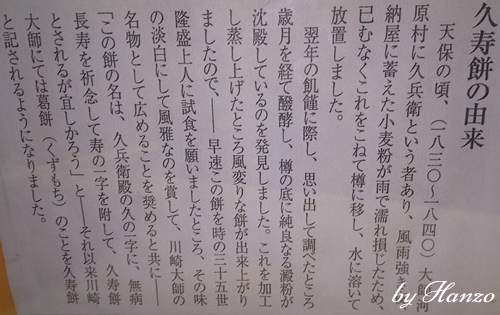 久寿餅の由来
天保の頃、(一八三〇〜一八四〇)大師河
原村に久兵衛という者あり、風雨強き
納屋に蓄えた小麦粉が雨で濡れ損じたため、
已むなくこれをこねて樽に移し、水に溶いて
放置しました。
翌年の飢饉に際し、思い出して調べたところ
歳月を経て醗酵し、樽の底に純良なる澱粉が
沈殿しているのを発見しました。これを加工
し蒸し上げたところ風変りな餅が出来上がり
ましたので、――早速この餅を時の三十五世
隆盛上人に試食を願いましたところ、その味
の淡白にして風雅なのを賞して、川崎大師の
名物として広めることを奨めると共に――
「この餅の名は、久兵衛殿の久の一字に、無病
長寿を祈念して寿の一字を附して、久寿餅
とされるが宜しかろう」と――それ以来川崎
大師にては葛餅(くずもち)のことを久寿餅
と記されるようになりました。
by Hanzo